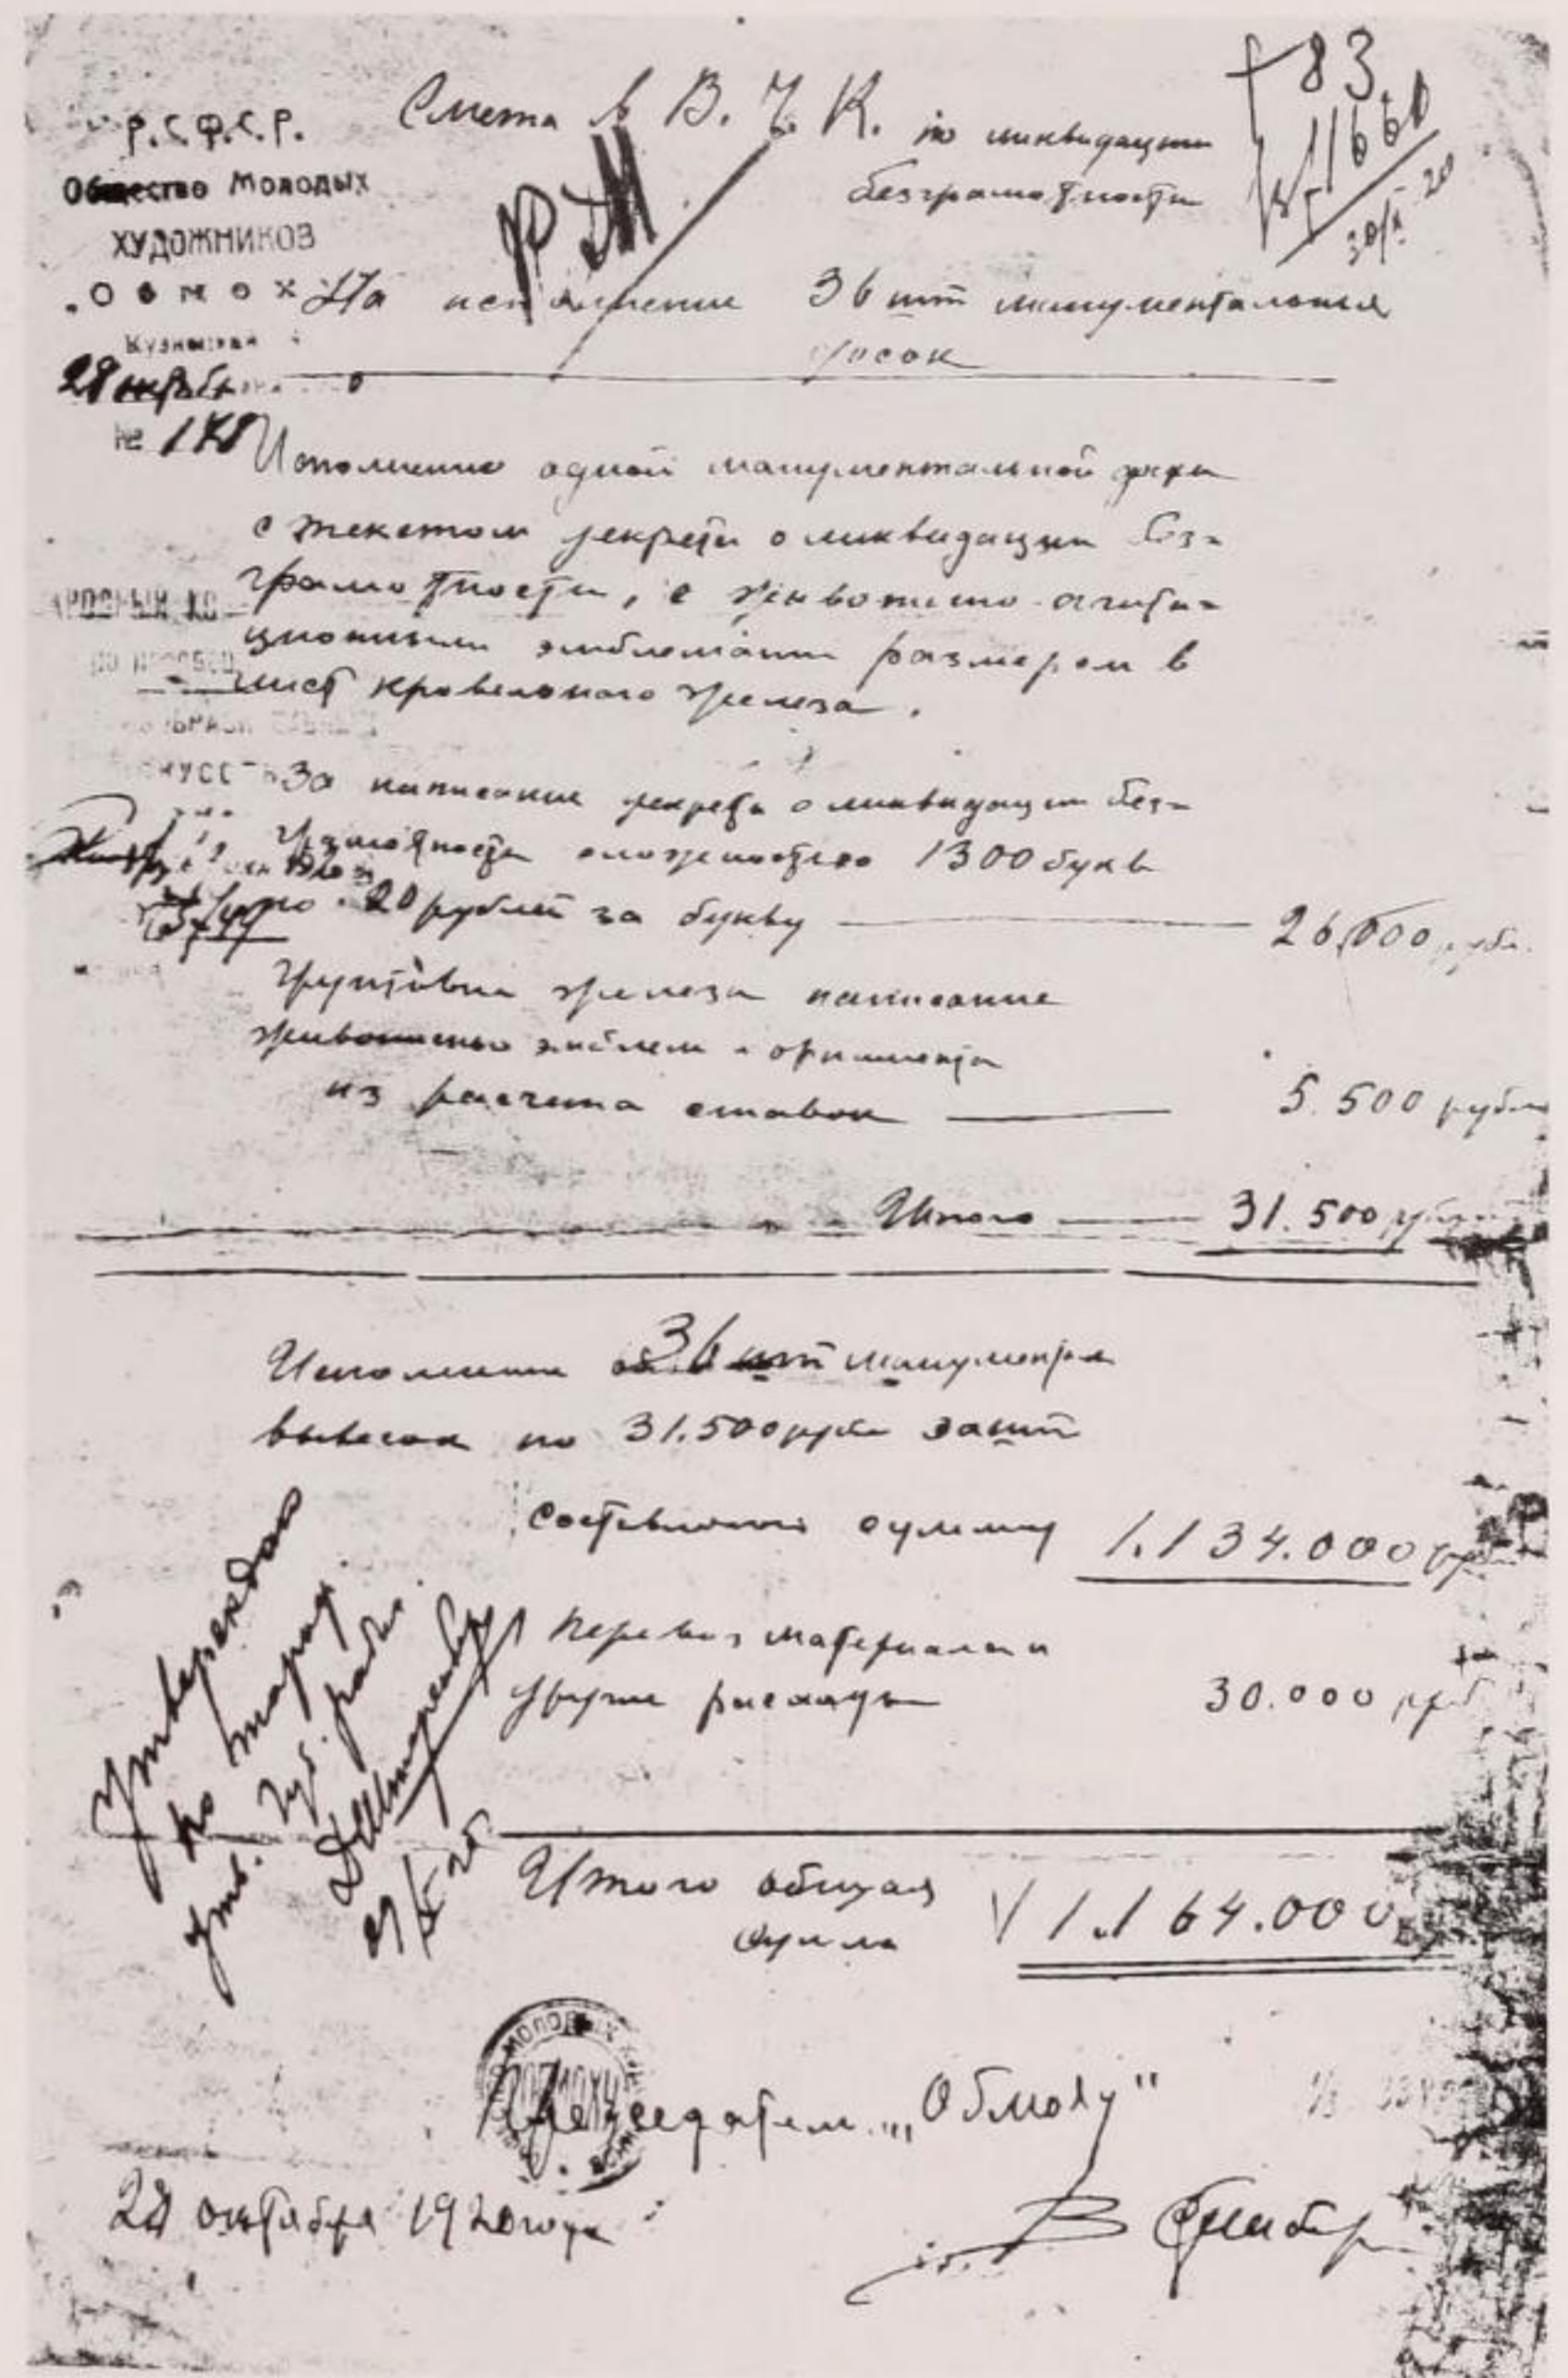 Р.С.Ф.С.Р.
Общество Молодых
ХУДОЖНИКОВ
"Обмоху"
№ 178
Смета в В. Ч. К. по ликвидации
безграмотности
+83
1166
На исполнение 36 шт монументальных
досок
Исполнение одной монументальной доски
с текстом декрета о ликвидации без-
грамотности, с живописно-агита-
ционными эмблемами размером в
лист кровельного железа.
За написание декрета о ликвидации без-
грамотности сложностью 1300 букв
по 20 рублей за букву — 26.000 рубл.
Грунтовка железа написание
живописью эмблем и орнамента
из расчета ставок — 5.500 рубл
Итого — 31.500 рубл
Исполнение 36 шт монумент
вывесок по 31.500 рубл за шт
составляют сумму 1.134.000 руб
Перевоз материала и
другие расходы 30.000 руб
Утверждаю
по тариф.
утв. Губ. рабис
Итого общая
сумма 1.164.000
Председатель „Обмоху"
28 октября 1920 года
В